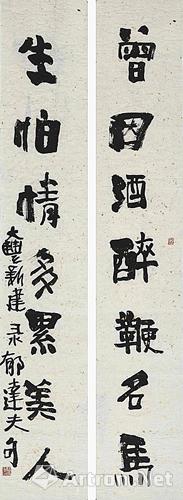 曾因酒醉鞭名馬
生怕情多累美人
大豐新建录郁達夫句
Artron.Net